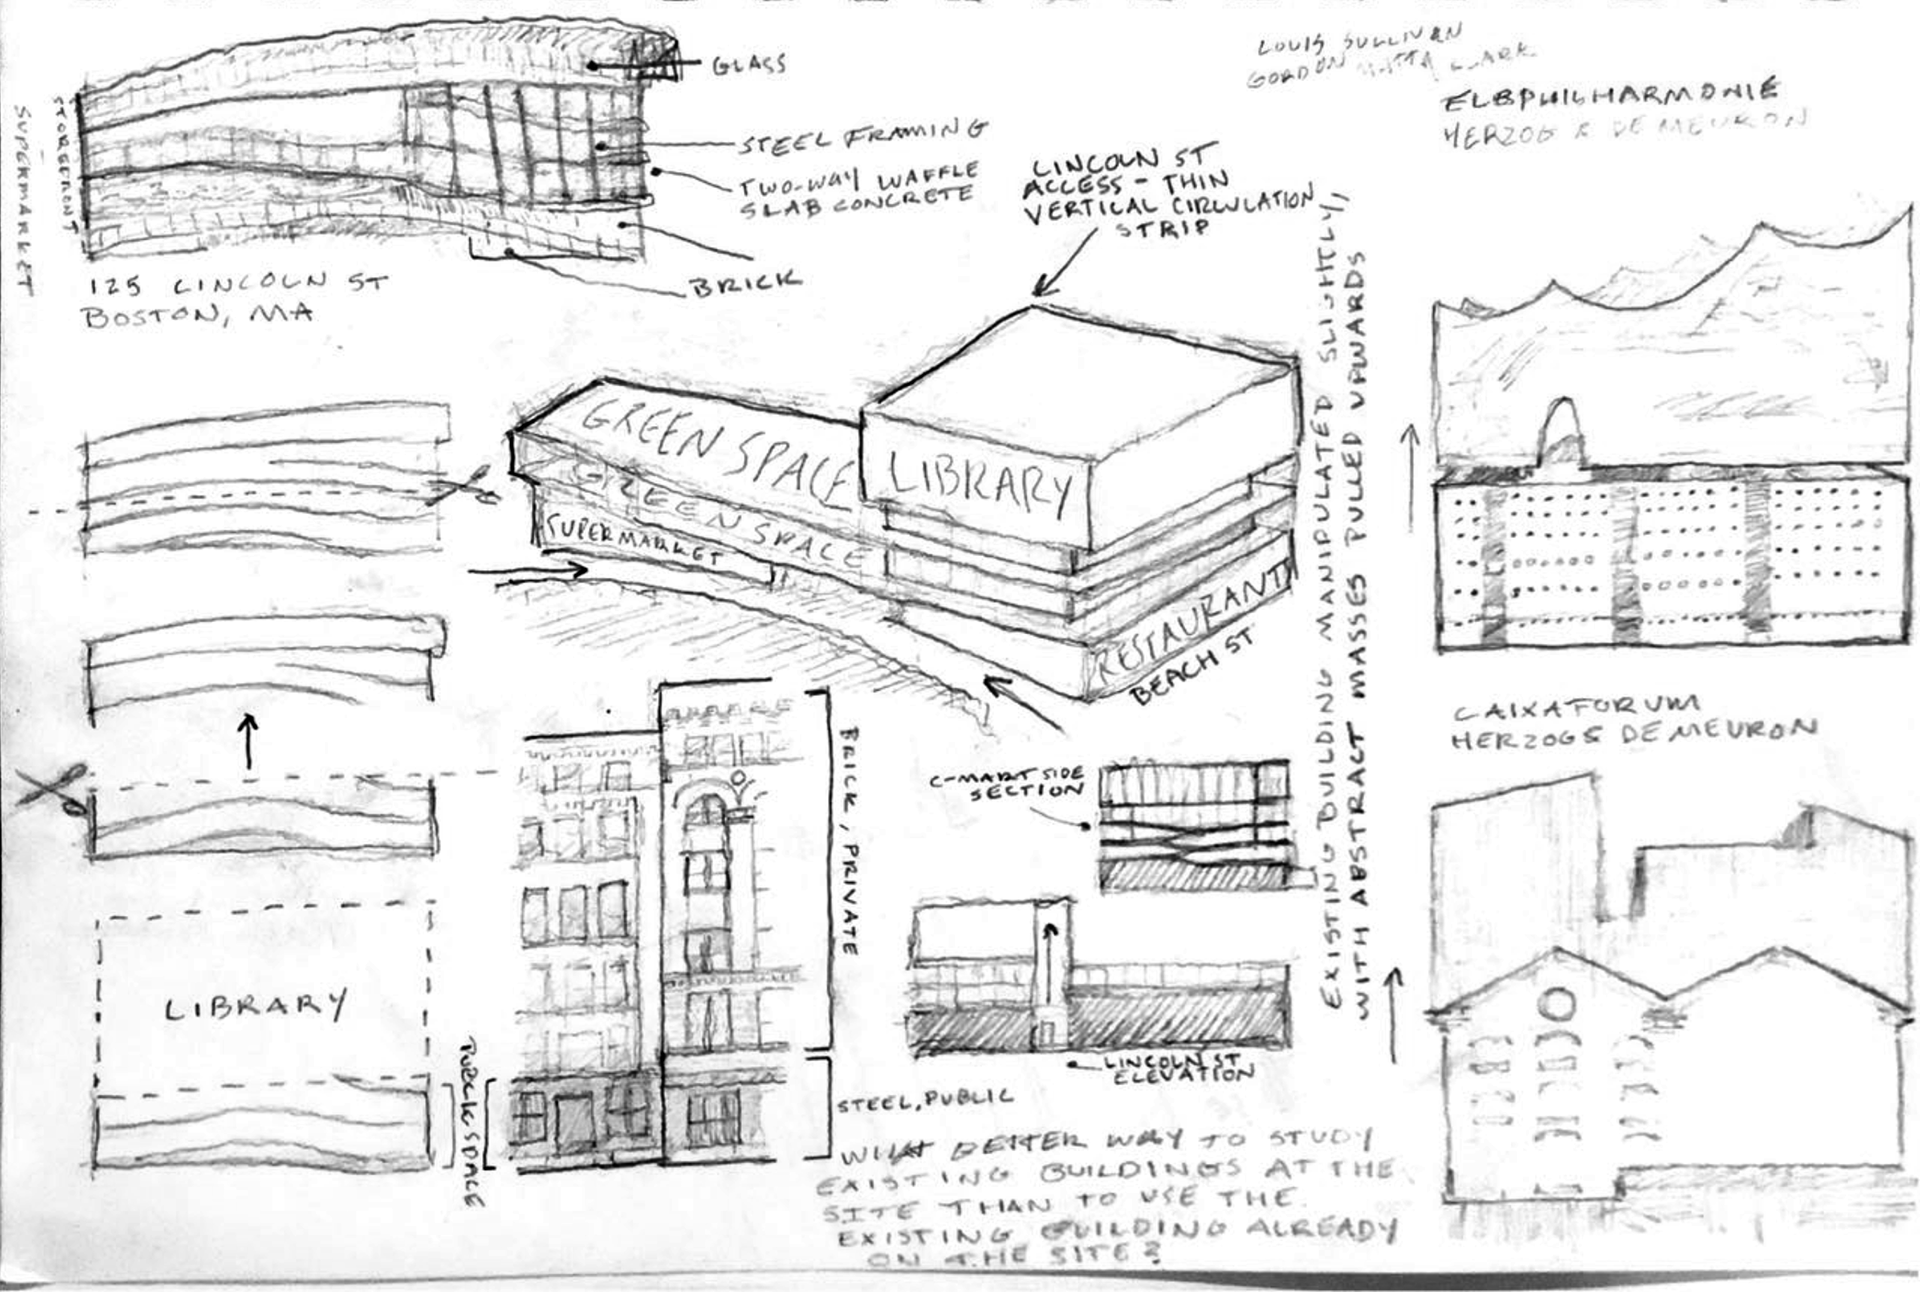 GLASS
STEEL FRAMING
TWO-WAY WAFFLE
SLAB CONCRETE
BRICK
STOREFRONT
SUPERMARKET
125 LINCOLN ST
BOSTON, MA
LOUIS SULLIVAN
GORDON MATTA CLARK
ELBPHILHARMONIE
HERZOG & DE MEURON
LINCOLN ST
ACCESS - THIN
VERTICAL CIRCULATION
STRIP
GREEN SPACE
GREEN SPACE
SUPERMARKET
LIBRARY
RESTAURANT
BEACH ST
EXISTING BUILDING MANIPULATED SLIGHTLY,
WITH ABSTRACT MASSES PULLED UPWARDS
CAIXAFORUM
HERZOG & DE MEURON
C-MART SIDE
SECTION
LINCOLN ST
ELEVATION
BRICK, PRIVATE
STEEL, PUBLIC
LIBRARY
PUBLIC SPACE
WHAT BETTER WAY TO STUDY
EXISTING BUILDINGS AT THE
SITE THAN TO USE THE
EXISTING BUILDING ALREADY
ON THE SITE?